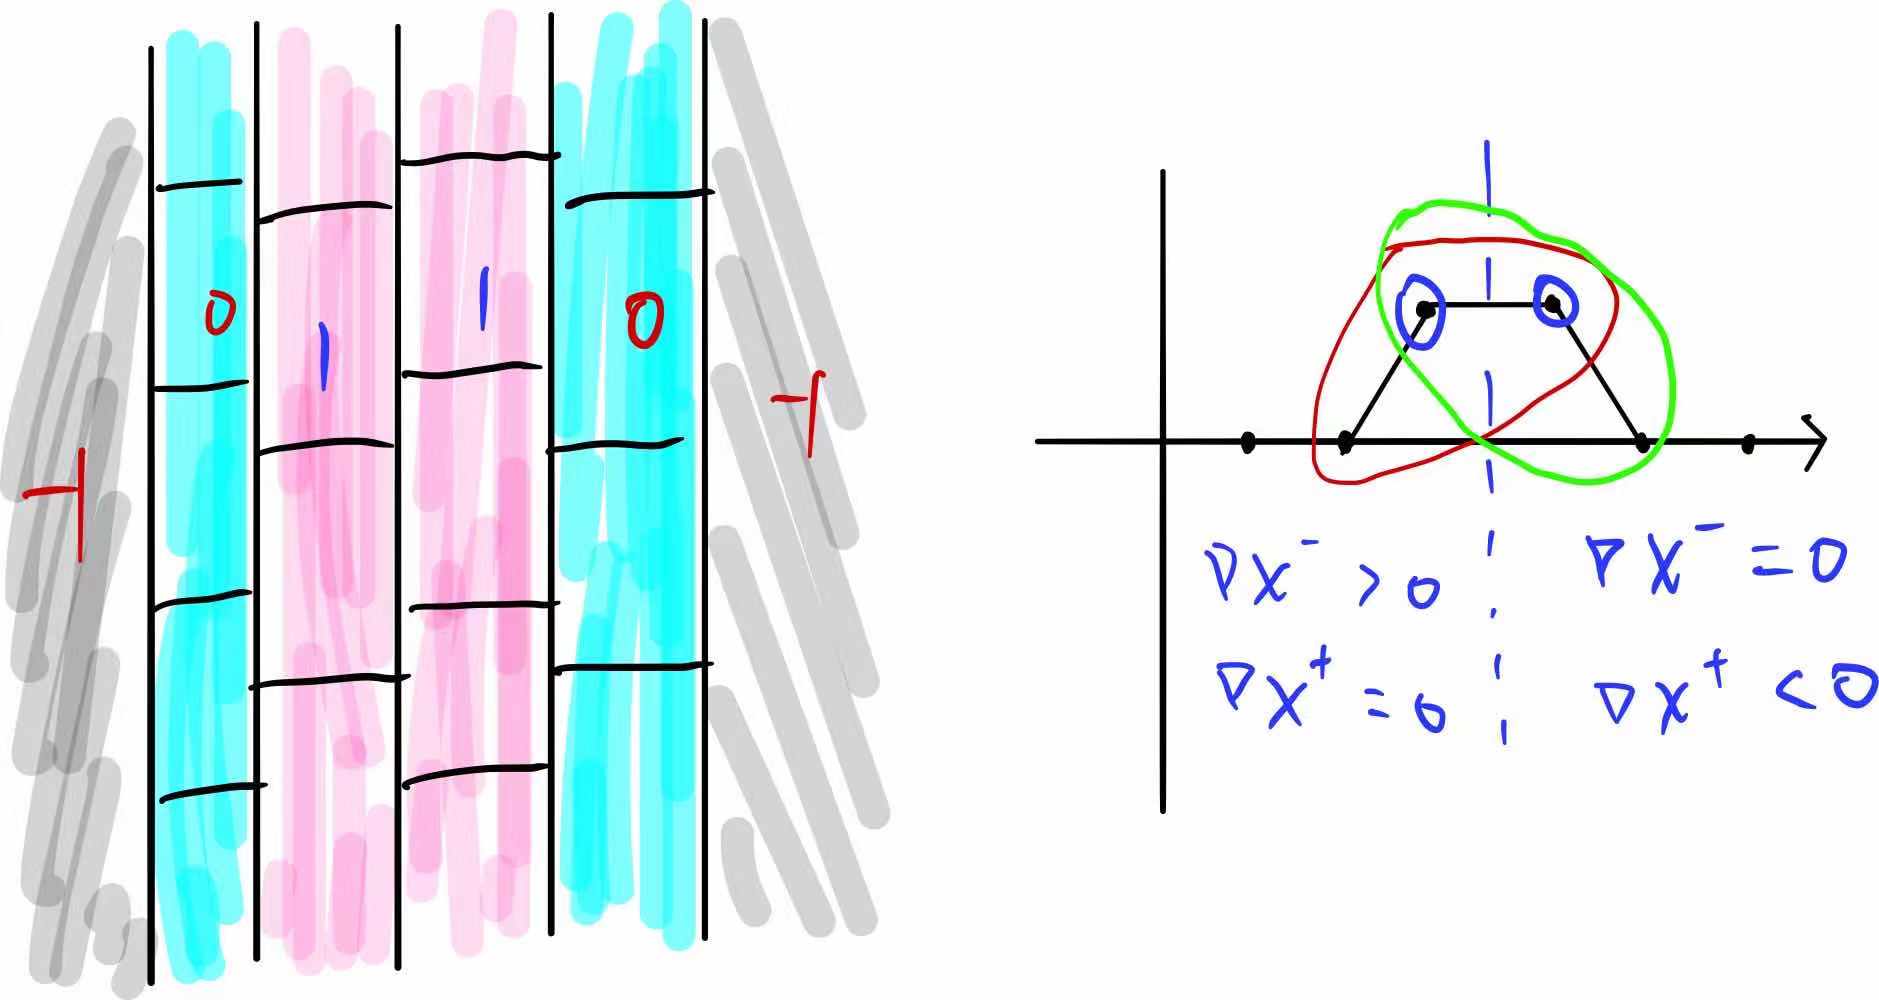 0
1
1
0
-1
-1
∇X⁻ > 0
∇X⁻ = 0
∇X⁺ = 0
∇X⁺ < 0